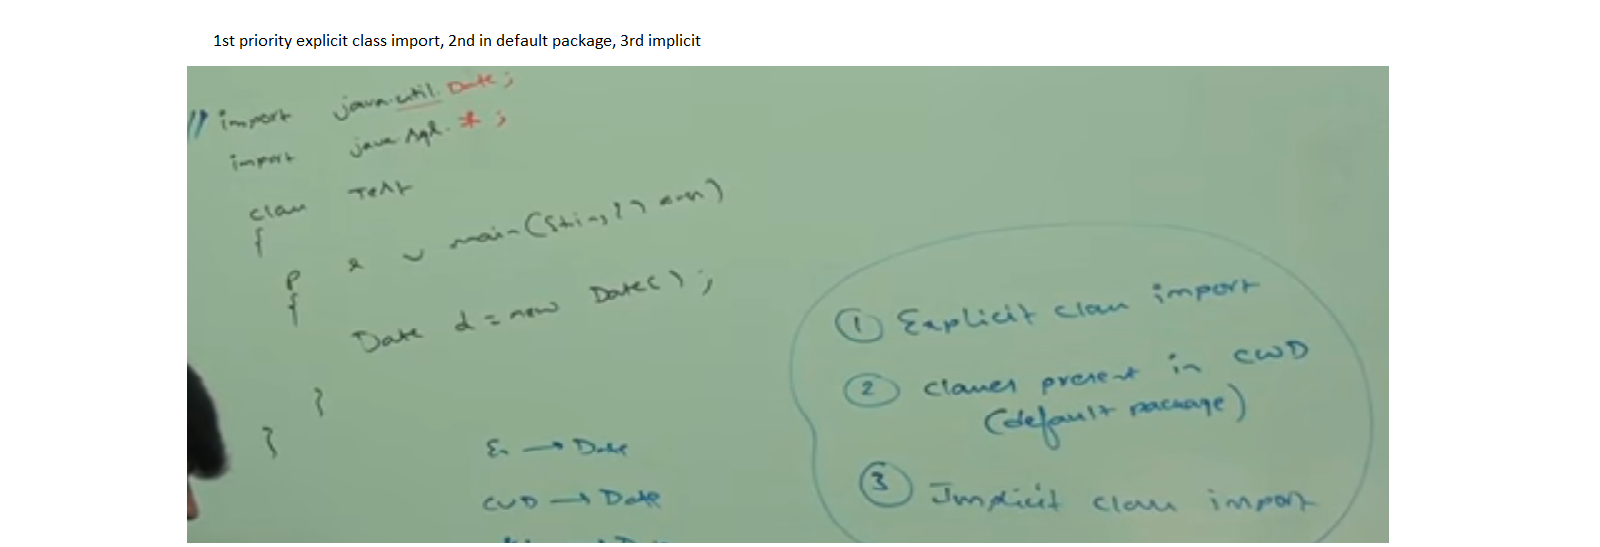 1st priority explicit class import, 2nd in default package, 3rd implicit
// import java.util. Date;
import java.sql. * ;
class Test
{
P s v main(String[] args)
{
Date d = new Date();
}
}
① Explicit class import
② classes present in CWD
(default package)
③ Implicit class import
→ Date
CWD → Date